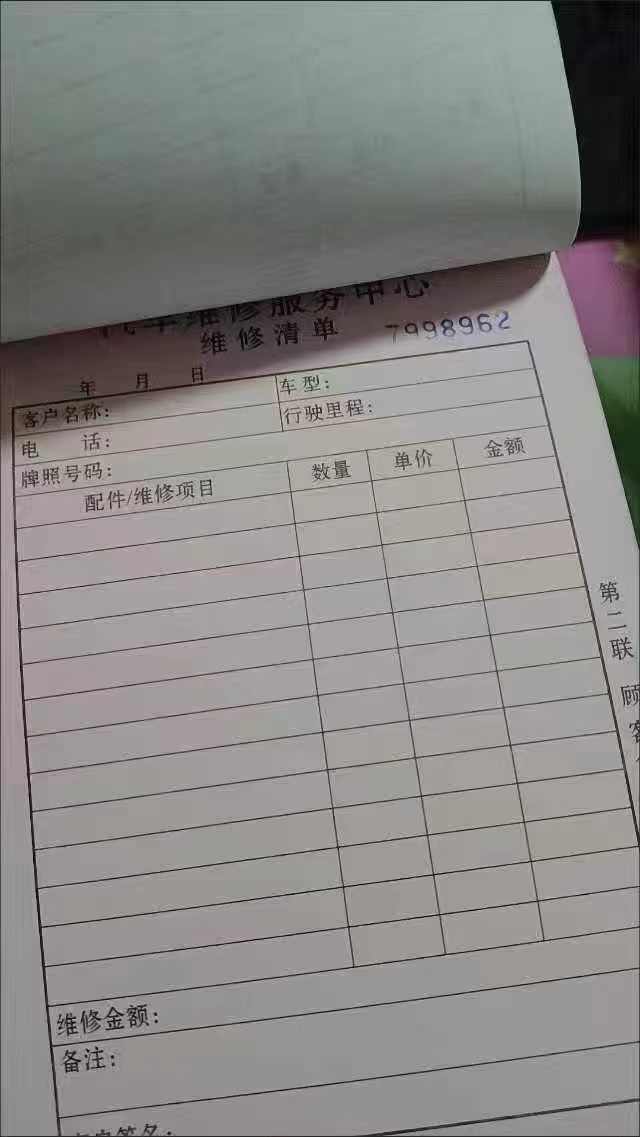 汽车维修服务中心
维修清单 7998962
年 月 日
客户名称: 车型:
电 话: 行驶里程:
牌照号码:
配件/维修项目 数量 单价 金额
第二联 顾客
维修金额:
备注:
客户签名: